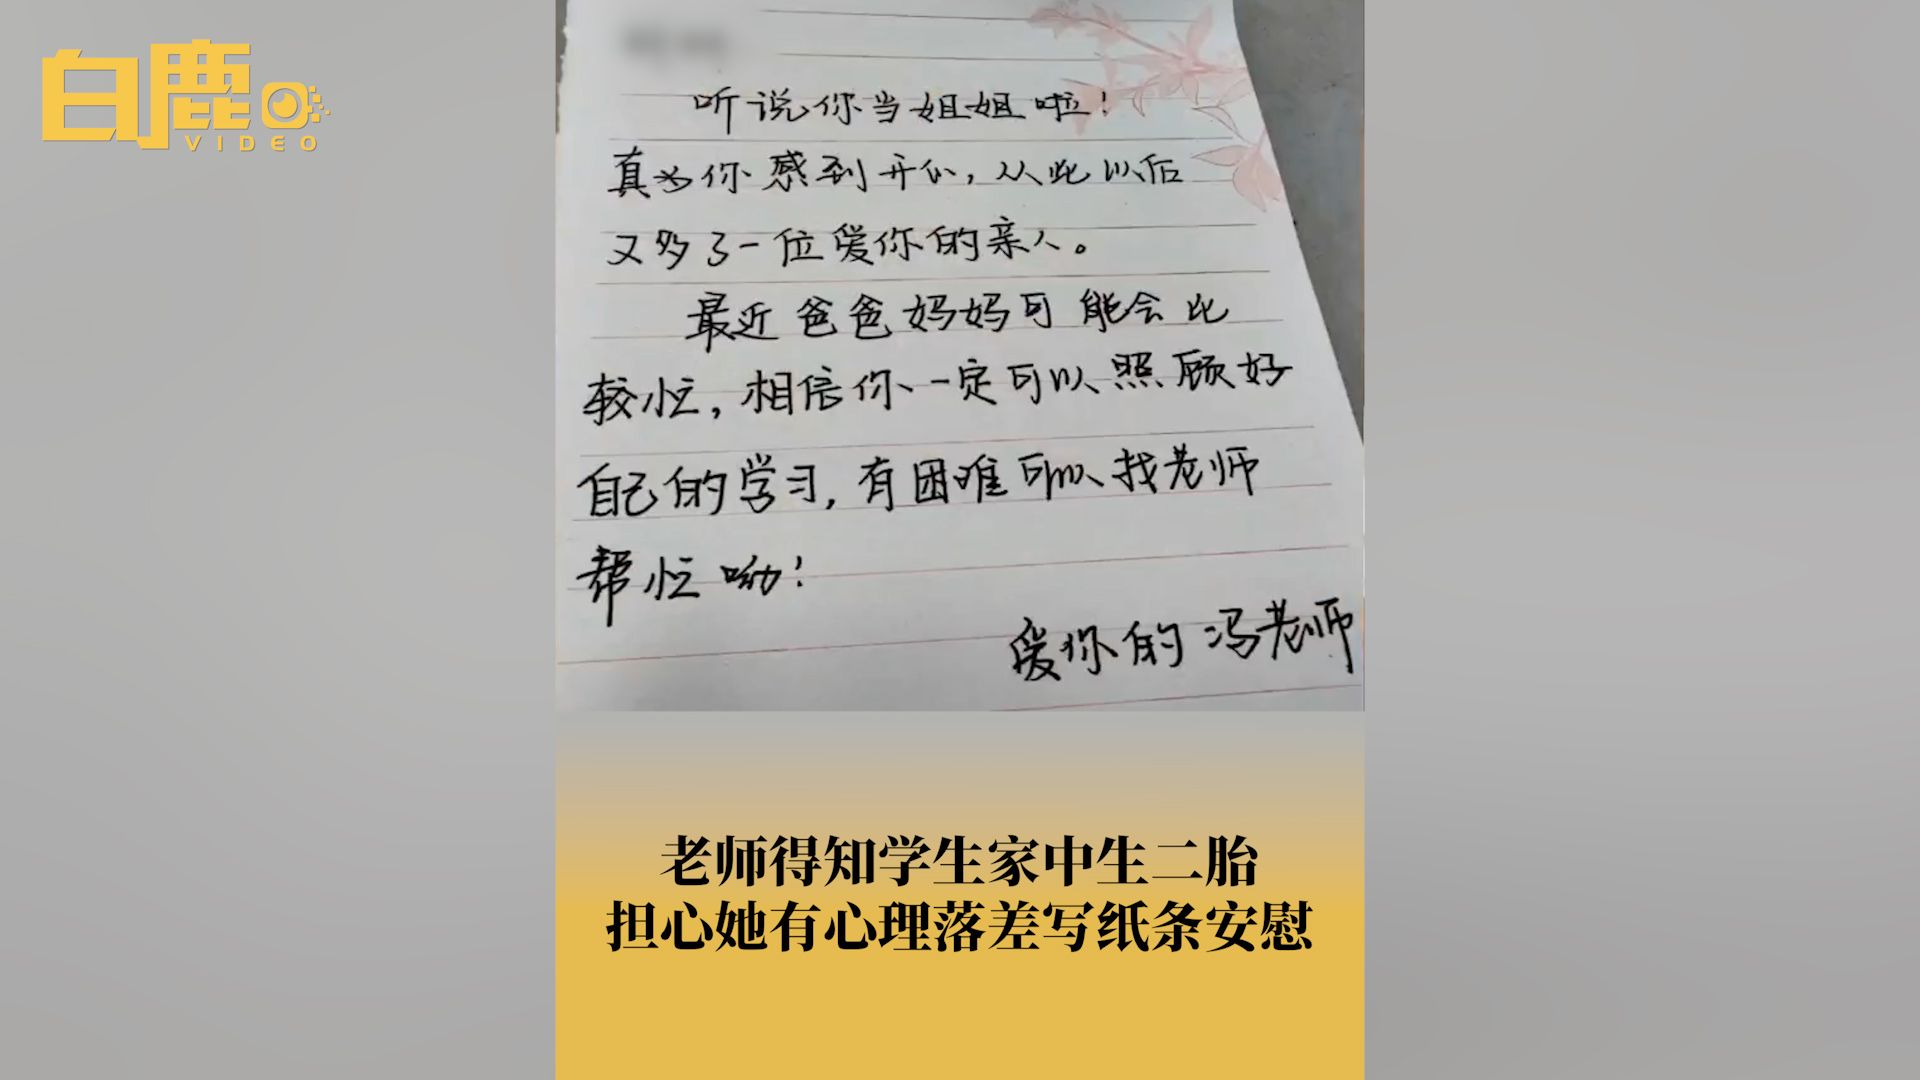 白鹿
VIDEO
听说你当姐姐啦!
真为你感到开心,从此以后
又多了一位爱你的亲人。
最近爸爸妈妈可能会比
较忙,相信你一定可以照顾好
自己的学习,有困难可以找老师
帮忙呦!
爱你的冯老师
老师得知学生家中生二胎
担心她有心理落差写纸条安慰